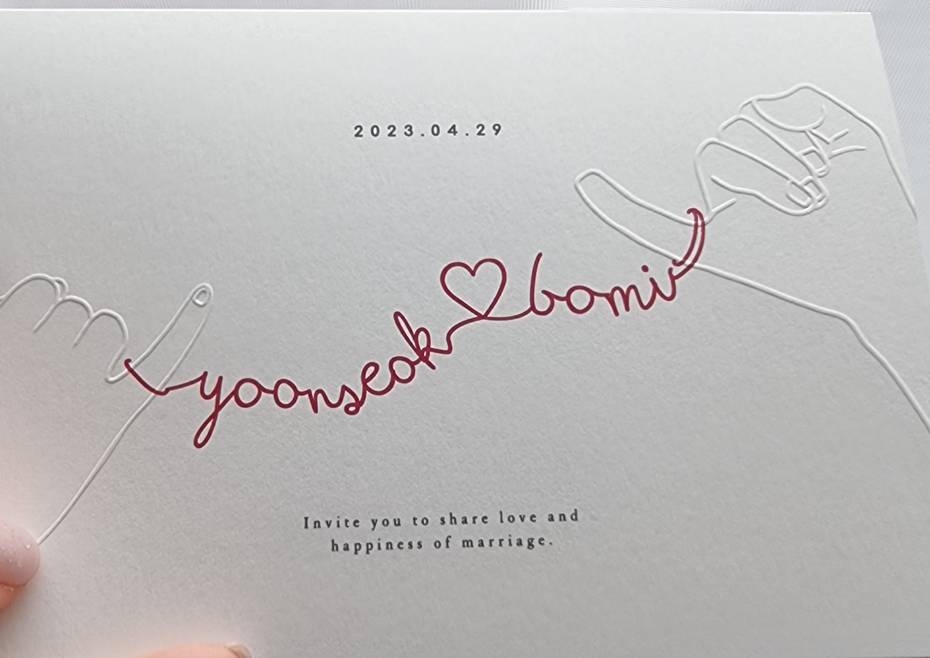 2023.04.29
yoonseok♡bomi
Invite you to share love and
happiness of marriage.